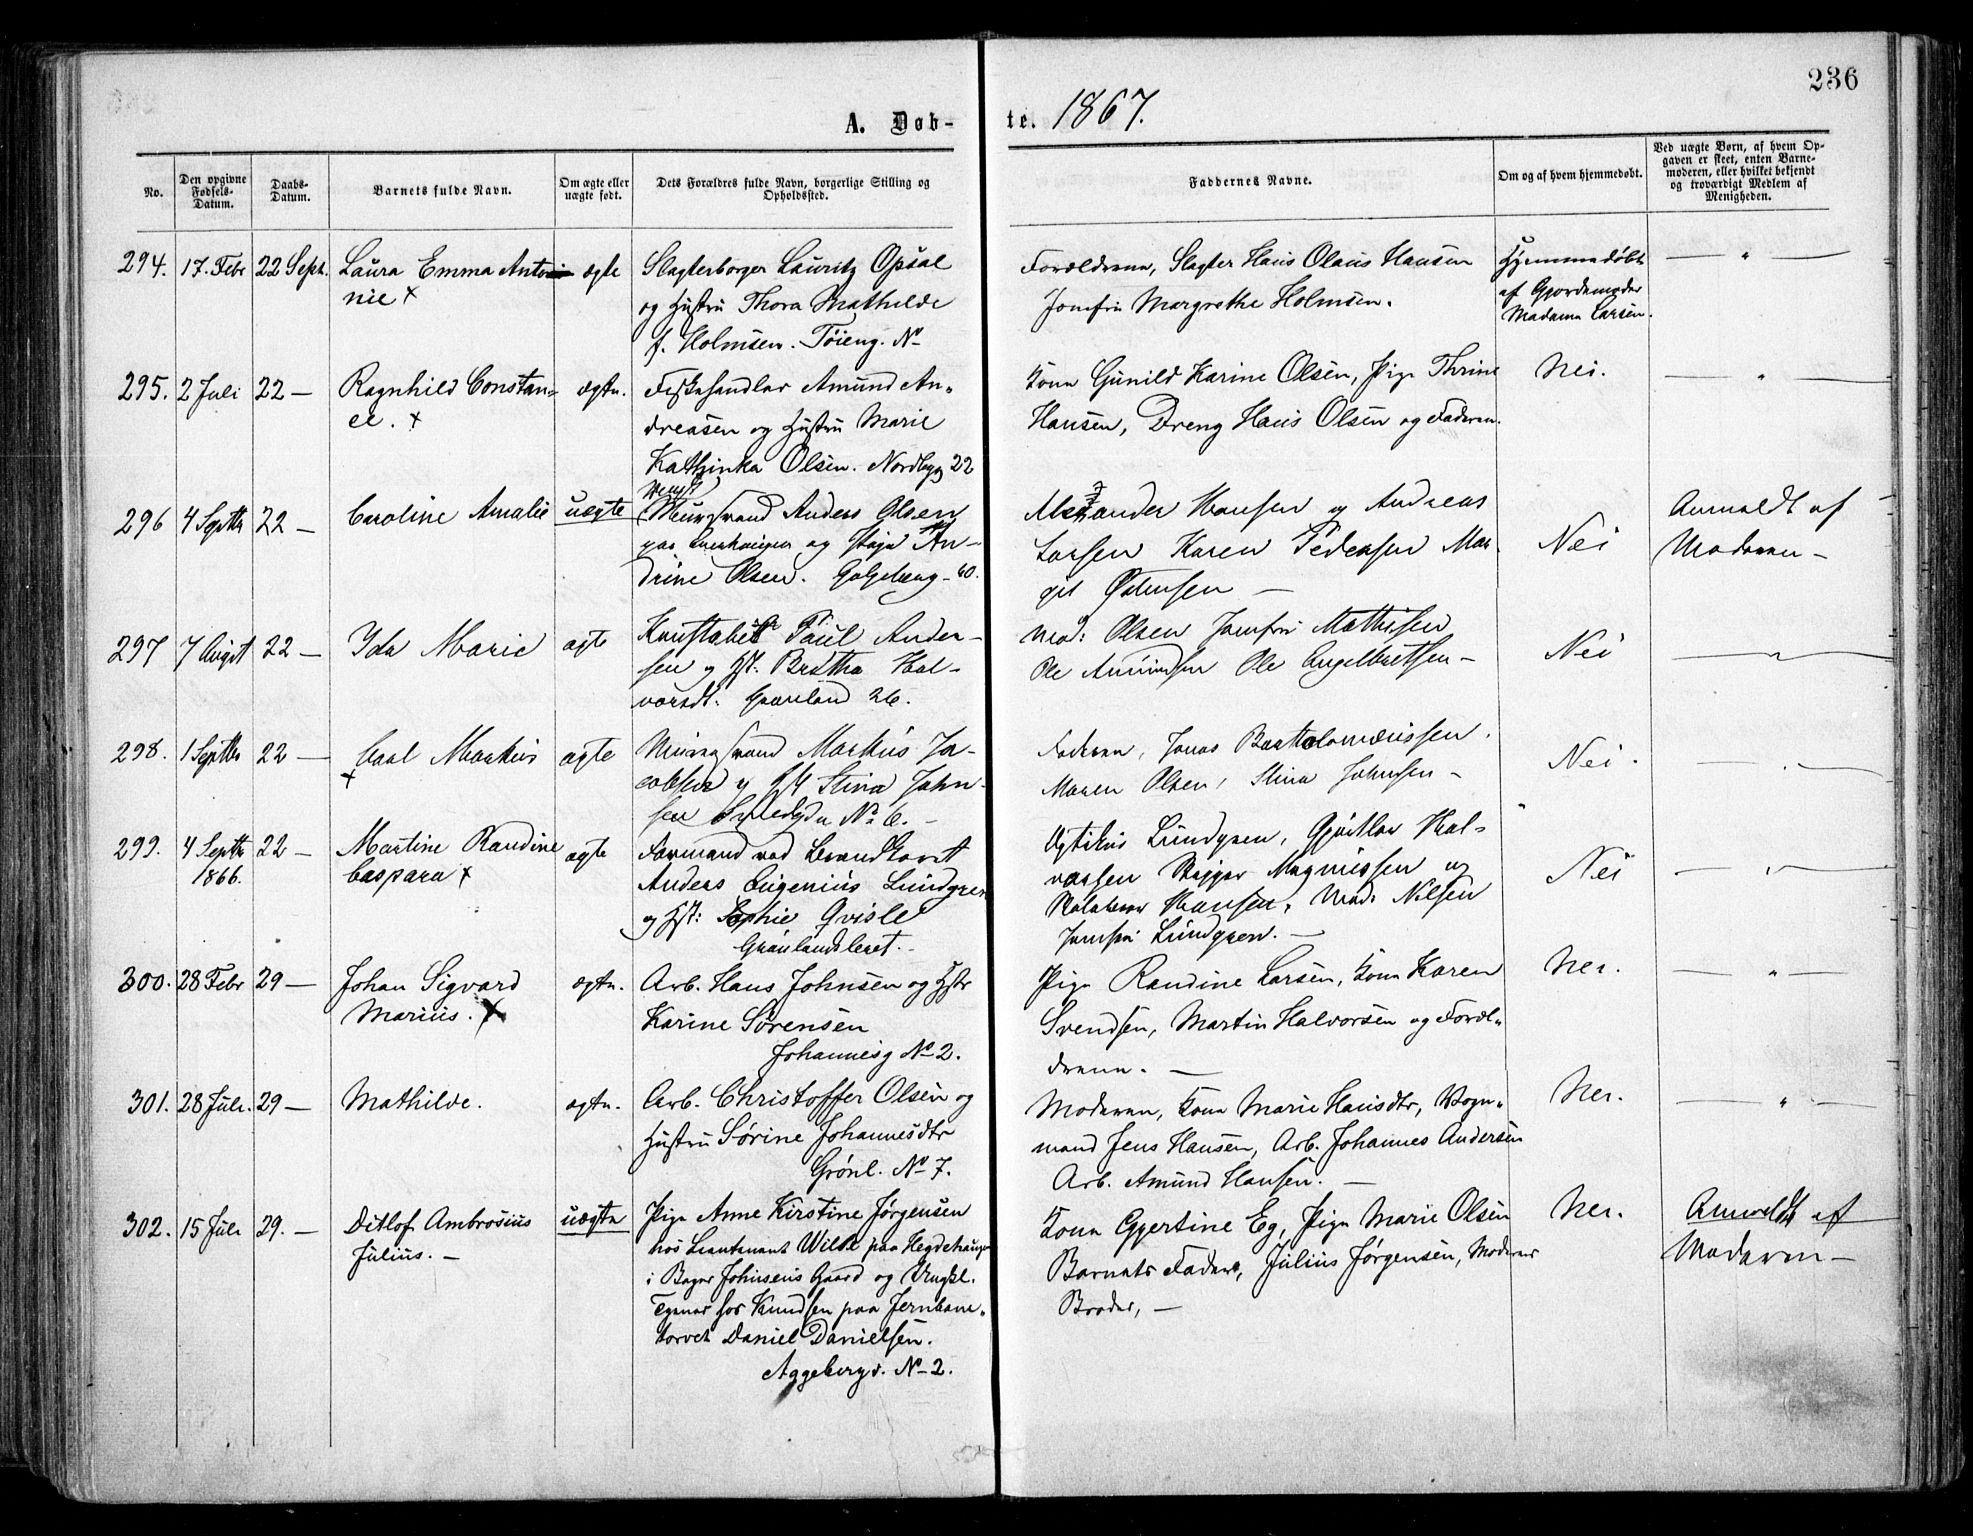 236
A. Døb-
te. 1867.
No.
Den opgivne Fødsels-Datum.
Daabs-Datum.
Barnets fulde Navn.
Om ægte eller uægte født.
Dets Forældres fulde Navn, borgerlige Stilling og Opholdssted.
Faddernes Navne.
Om og af hvem hjemmedøbt.
Ved uægte Børn, af hvem Op-
gaven er skeet, enten Barne-
moderen, eller hvilket bekjendt
og troværdigt Medlem af
Menigheden.
294. 17. Febr 22 Septr. Laura Emma Antoi ægte
nie x
Slagterborger Lauritz Opsal
og Hustru Thora Mathilde
f. Holmsen. Tøieng. No
Forældrene, Slagter Hans Olaus Hansen
Jomfru Margrethe Holmsen.
Hjemmedøbt
af Gjordemoder
Madame Larsen.
— " —
295. 2 Juli 22 — Ragnhild Constan-
ce. x
ægte.
Fiskehandler Amund An-
dreasen og Hustru Marie
Kathinka Olsen. Nordbyg 22
Kone Gunild Karine Olsen, Pige Thrine
Hansen, Dreng Hans Olsen og Faderen.
Nei.
— " —
296 4 Septbr 22 — Caroline Amalie uægte
Ungk.
Murersvend Anders Olsen
og Pige An-
drine Olsen. Galgeberg - 40.
Alexander Hansen og Andreas
Larsen Karen Pedersen Mar-
git Østensen —
Nei
Anmeldt af
Moderen —
297 7 August 22 — Ida Marie ægte
Konstabel Paul Ander-
sen og Hst. Bertha Hal-
vorsdt: Grønland 26.
Mad: Olsen Jomfru Mathisen
Ole Amundsen Ole Engelbretsen —
Nei
— " —
298. 1 Septbr 22 — Carl Markus
x
ægte
Murersvend Markus Ja-
cobsen og Hst Stina John-
sen Smedgdn No 6. —
Faderen, Jonas Bartholomæussen.
Maren Olsen, Stina Johnsen —
Nei.
— . —
299. 4 Septbr
1866.
22 — Martine Randine
Caspara x
ægte
Formand ved Brandkoret
Anders Eugenius Lundgren
og Hst: Sophie Qvisle
Grønlandsleret. —
Optikus Lundgren, Gjørtler Hal-
vorsen Skipper Magnussen og
Hansen, Mad. Nilsen
Jomfru Lundgren. —
Nei
— " —
300. 28 Febr 29 — Johan Sigvard
Marius. x
ægte.
Arb. Hans Johnsen og Hstr
Karine Sørensen
Johannesg No 2.
Pige Randine Larsen, Kone Karen
Svendsen, Martin Halvorsen og Foræl-
drene. —
Nei.
— " —
301. 28 Juli. 29 — Mathilde. ægte.
Arb. Christoffer Olsen og
Hustru Sørine Johannesdtr
Grønl. No 7.
Moderen, Kone Marie Hansdtr, Vogn-
mand Jens Hansen, Arb. Johannes Andersen
Arb. Amund Hansen. —
Nei.
— " —
302. 15 Juli 29. — Ditlof Ambrosius
Julius. —
uægte
Pige Anne Kirstine Jørgensen
hos Lieutenant Wilde paa Hegdehaugen
i Bager Johnsens Gaard og Ungkl.
Tjener hos Knudsen paa Jernbane-
torvet Daniel Danielsen.
Aggebergv. No 2.
Kone Gjertine Eg, Pige Marie Olsen
Barnets Fader, Julius Jørgensen, Moderens
Broder, —
Nei.
Anmeldt af
Moderen —